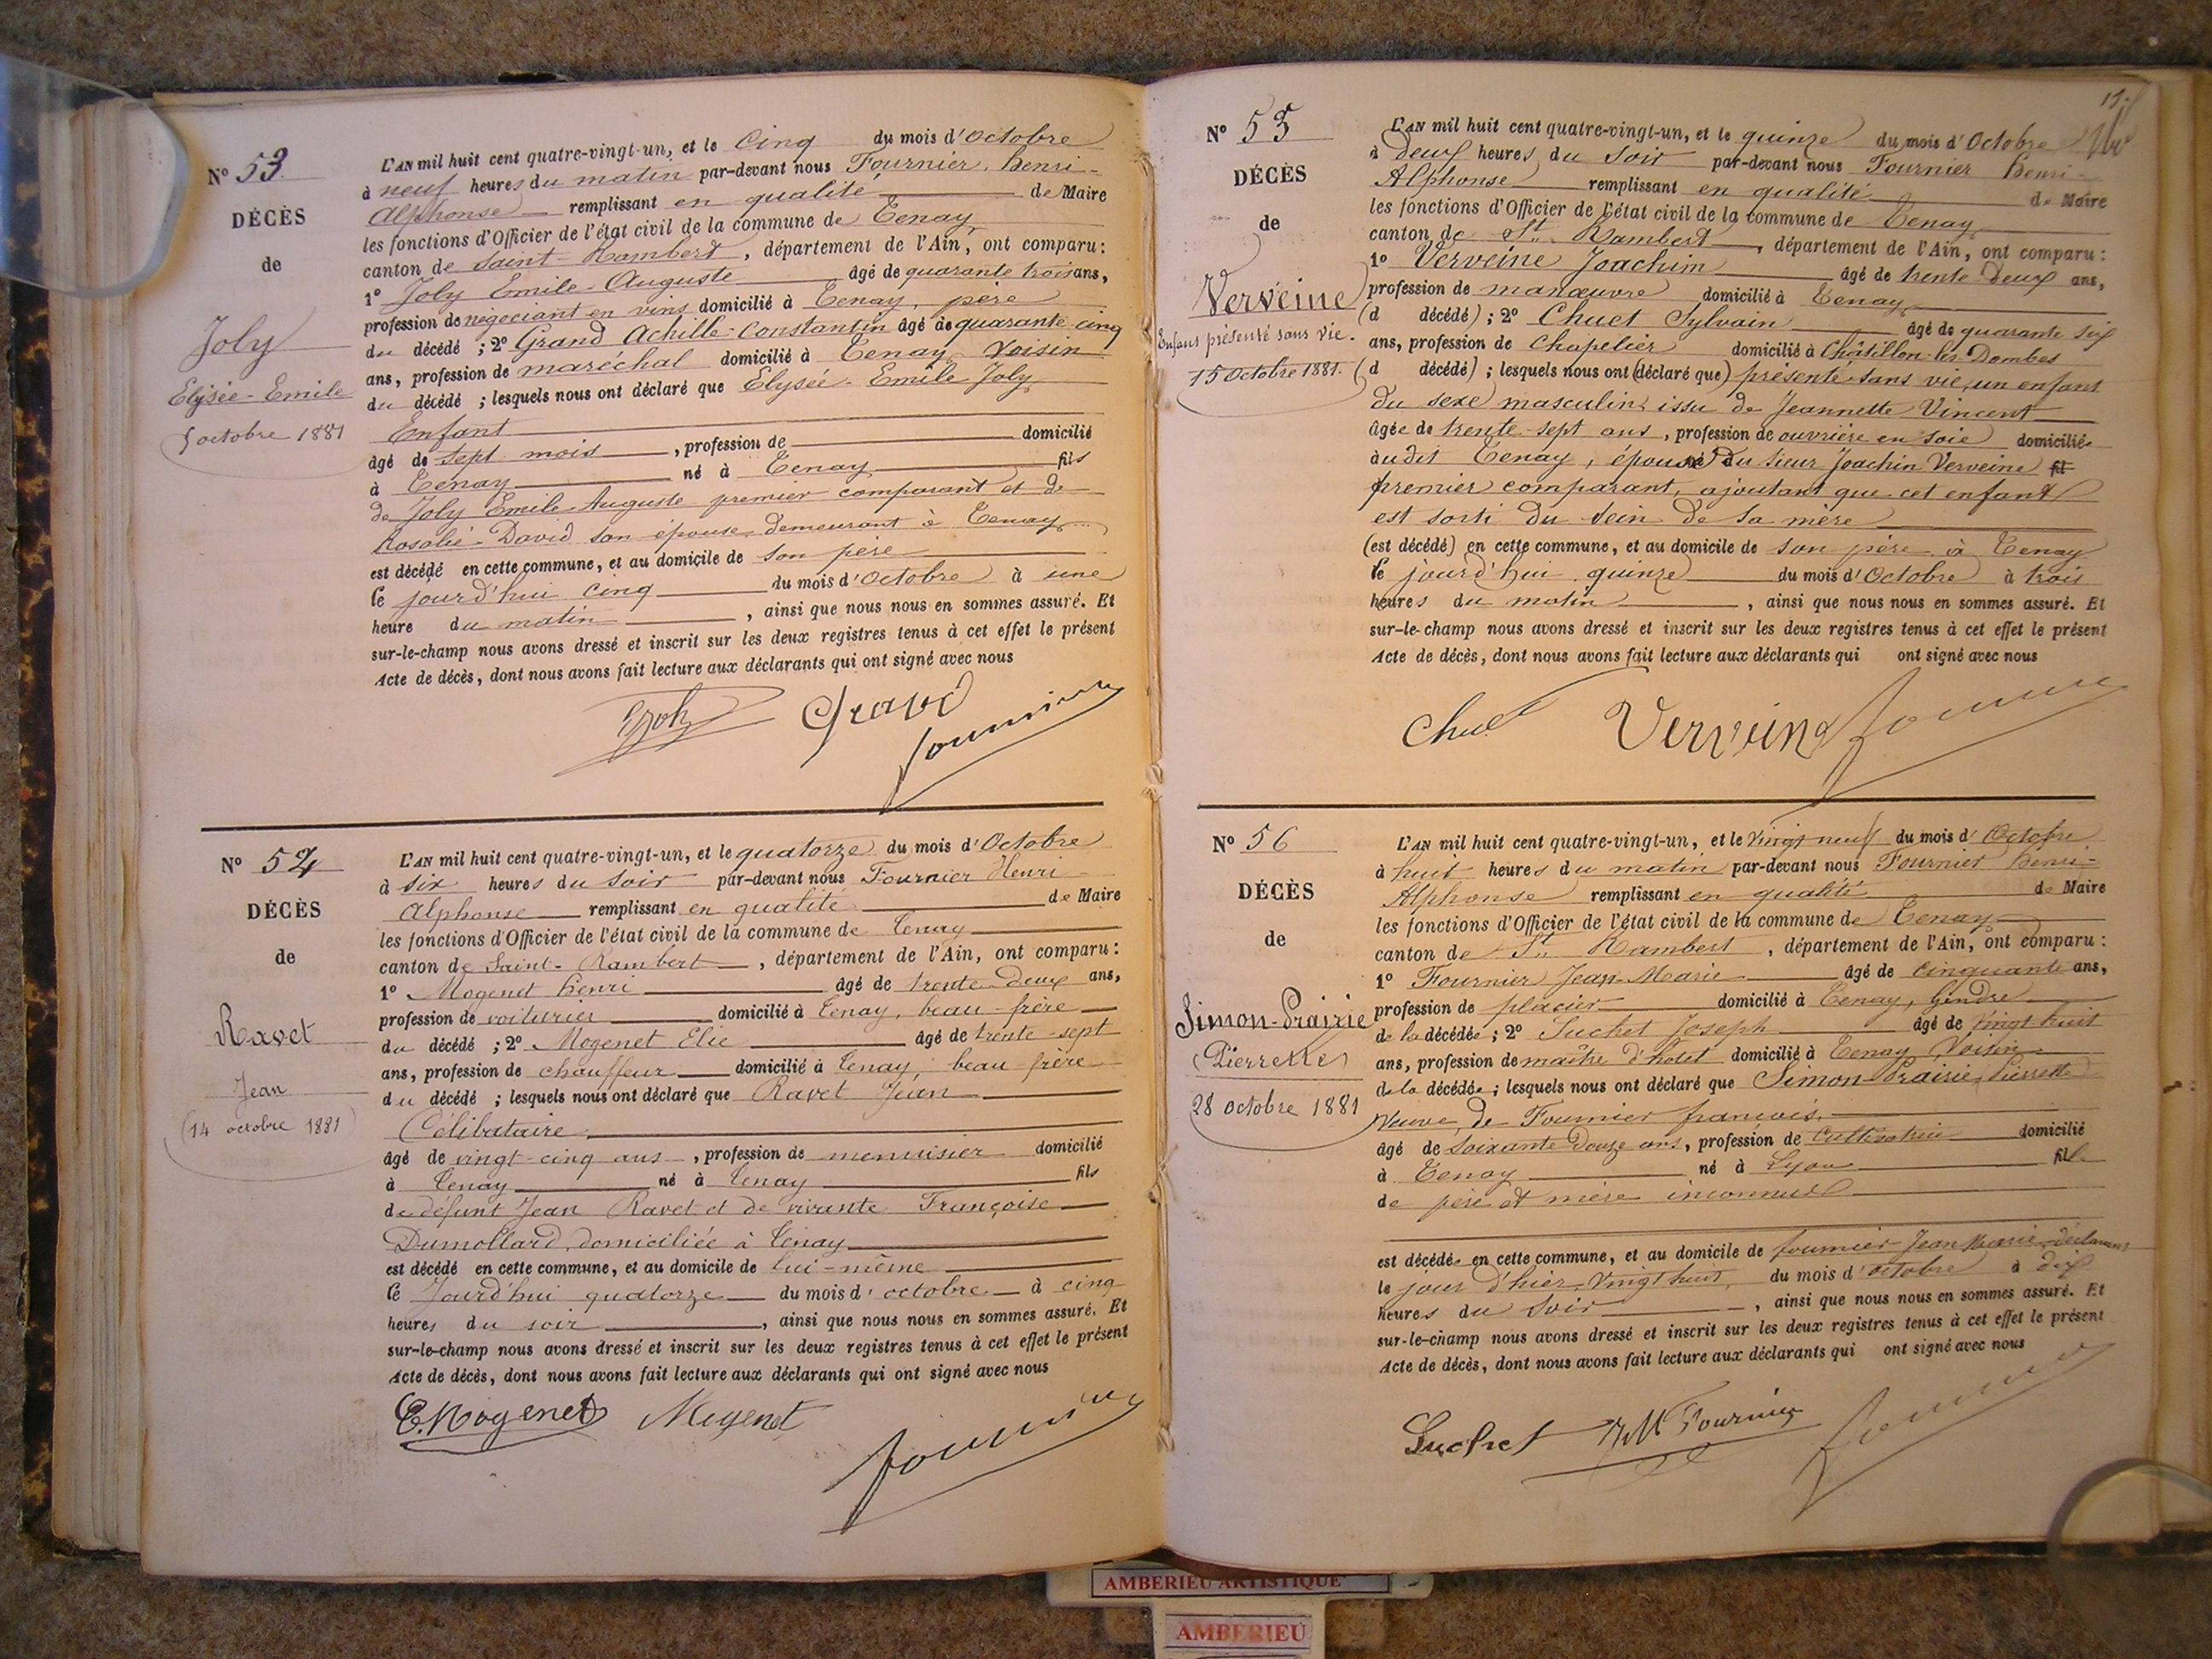 N° 53
DÉCÈS
de
Joly
Elysée-Emile
5 octobre 1881
L'AN mil huit cent quatre-vingt-un, et le Cinq du mois d'Octobre
à neuf heures du matin par-devant nous Fournier, henri-
Alphonse remplissant en qualité de Maire
les fonctions d'Officier de l'état civil de la commune de Tenay
canton de Saint-Rambert, département de l'Ain, ont comparu:
1° Joly Emile-Auguste âgé de quarante trois ans,
profession de négociant en vins domicilié à Tenay, père
du décédé ; 2° Grand Achille-Constantin âgé de quarante-cinq
ans, profession de maréchal domicilié à Tenay Voisin
du décédé ; lesquels nous ont déclaré que Elysée-Emile Joly
Enfant
âgé de sept mois, profession de domicilié
à Tenay né à Tenay fils
de Joly Emile-Auguste premier comparant et de
Rosalie-David son épouse, Demeurant à Tenay
est décédé en cette commune, et au domicile de son père
le jourd'hui cinq du mois d'Octobre à une
heure du matin, ainsi que nous nous en sommes assuré. Et
sur-le-champ nous avons dressé et inscrit sur les deux registres tenus à cet effet le présent
Acte de décès, dont nous avons fait lecture aux déclarants qui ont signé avec nous
Joly Grand
Fournier
N° 54
DÉCÈS
de
Ravet
Jean
(14 octobre 1881)
L'AN mil huit cent quatre-vingt-un, et le quatorze du mois d'Octobre
à six heures du soir par-devant nous Fournier Henri-
Alphonse remplissant en qualité de Maire
les fonctions d'Officier de l'état civil de la commune de Tenay
canton de Saint-Rambert, département de l'Ain, ont comparu:
1° Mogenet henri âgé de trente-Deux ans,
profession de voiturier domicilié à Tenay, beau-frère
du décédé ; 2° Mogenet Elie âgé de trente-sept
ans, profession de chauffeur domicilié à Tenay, beau-frère
du décédé ; lesquels nous ont déclaré que Ravet Jean
Célibataire
âgé de vingt-cinq ans, profession de menuisier domicilié
à Tenay né à Tenay fils
de défunt Jean Ravet et de vivante Françoise
Dumollard, domiciliée à Tenay
est décédé en cette commune, et au domicile de lui-même
le Jourd'hui quatorze du mois d'octobre à cinq
heures du soir, ainsi que nous nous en sommes assuré. Et
sur-le-champ nous avons dressé et inscrit sur les deux registres tenus à cet effet le présent
Acte de décès, dont nous avons fait lecture aux déclarants qui ont signé avec nous
E. Mogenet Mogenet
Fournier
N° 55
DÉCÈS
de
Verveine
Enfant présenté sans vie.
15 Octobre 1881.
L'AN mil huit cent quatre-vingt-un, et le quinze du mois d'Octobre
à Deux heures du soir par-devant nous Fournier henri-
Alphonse remplissant en qualité de Maire
les fonctions d'Officier de l'état civil de la commune de Tenay
canton de St. Rambert, département de l'Ain, ont comparu:
1° Verveine Joachim âgé de trente-Deux ans,
profession de manœuvre domicilié à Tenay
(d décédé) ; 2° Chuet Sylvain âgé de quarante six
ans, profession de chapelier domicilié à Châtillon-les-Dombes
(d décédé) ; lesquels nous ont (déclaré que) présenté sans vie, un enfant
du sexe masculin, issu de Jeannette Vincent
âgée de trente-sept ans, profession de ouvrière en soie domiciliée
audit Tenay, épouse du sieur Joachin Verveine fil
premier comparant, ajoutant que cet enfant
est sorti du sein de sa mère
(est décédé) en cette commune, et au domicile de son père à Tenay
le jourd'hui quinze du mois d'Octobre à trois
heures du matin, ainsi que nous nous en sommes assuré. Et
sur-le-champ nous avons dressé et inscrit sur les deux registres tenus à cet effet le présent
Acte de décès, dont nous avons fait lecture aux déclarants qui ont signé avec nous
Chuet Verveine Fournier
N° 56
DÉCÈS
de
Simon-Prairie
(Pierrette)
28 octobre 1881
L'AN mil huit cent quatre-vingt-un, et le Vingt neuf du mois d'Octobre
à huit heures du matin par-devant nous Fournier henri-
Alphonse remplissant en qualité de Maire
les fonctions d'Officier de l'état civil de la commune de Tenay
canton de St. Rambert, département de l'Ain, ont comparu:
1° Fournier Jean-Marie âgé de cinquante ans,
profession de placier domicilié à Tenay, Gendre
de la décédée ; 2° Suchet Joseph âgé de Vingt huit
ans, profession de maître d'hôtel domicilié à Tenay Voisin
de la décédée ; lesquels nous ont déclaré que Simon-Prairie, Pierrette
Veuve de Fournier françois
âgé de soixante Douze ans, profession de cultivatrice domicilié
à Tenay né à Lyon fille
de père et mère inconnus
est décédée en cette commune, et au domicile de fournier Jean Marie déclarant
le jour d'hier Vingt huit du mois d'octobre à dix
heures du soir, ainsi que nous nous en sommes assuré. Et
sur-le-champ nous avons dressé et inscrit sur les deux registres tenus à cet effet le présent
Acte de décès, dont nous avons fait lecture aux déclarants qui ont signé avec nous
Suchet JM Fournier Fournier
AMBERIEU ARTISTIQUE
AMBERIEU